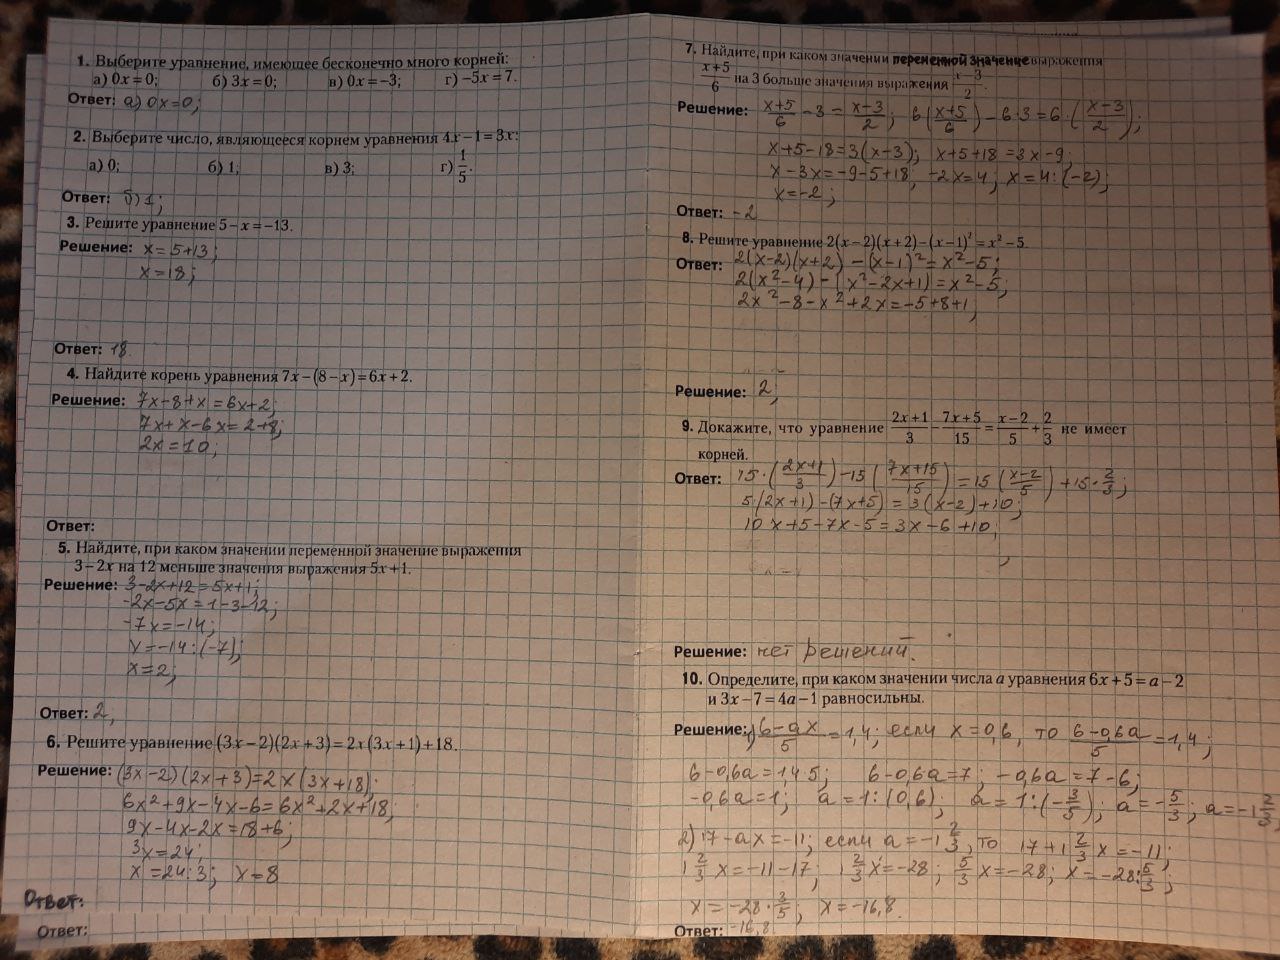 1. Выберите уравнение, имеющее бесконечно много корней:
а) 0x = 0; б) 3x = 0; в) 0x = −3; г) −5x = 7.
Ответ: а) 0x=0;
2. Выберите число, являющееся корнем уравнения 4x − 1 = 3x:
а) 0; б) 1; в) 3; г) 1/5.
Ответ: б) 1;
3. Решите уравнение 5 − x = −13.
Решение: x=5+13;
x=18;
Ответ: 18.
4. Найдите корень уравнения 7x − (8 − x) = 6x + 2.
Решение: 7x-8+x=6x+2;
7x+x-6x=2+8;
2x=10;
Ответ:
5. Найдите, при каком значении переменной значение выражения
3 − 2x на 12 меньше значения выражения 5x + 1.
Решение: 3-2x+12=5x+1;
-2x-5x=1-3-12;
-7x=-14;
x=-14:(-7);
x=2;
Ответ: 2,
6. Решите уравнение (3x − 2)(2x + 3) = 2x(3x + 1) + 18.
Решение: (3x-2)(2x+3)=2x(3x+18);
6x²+9x-4x-6=6x²+2x+18;
9x-4x-2x=18+6;
3x=24;
x=24:3; x=8
Ответ:
Ответ:
7. Найдите, при каком значении переменной значение выражения
(x+5)/6 на 3 больше значения выражения (x−3)/2.
Решение: (x+5)/6 -3 = (x-3)/2; 6((x+5)/6)-6·3=6·((x-3)/2);
x+5-18=3(x-3); x+5+18=3x-9;
x-3x=-9-5+18; -2x=4; x=4:(-2);
x=-2;
Ответ: -2
8. Решите уравнение 2(x − 2)(x + 2) − (x − 1)² = x² − 5.
Ответ: 2(x-2)(x+2)-(x-1)²=x²-5;
2(x²-4)-(x²-2x+1)=x²-5;
2x²-8-x²+2x=-5+8+1;
Решение: 2;
9. Докажите, что уравнение (2x+1)/3 − (7x+5)/15 = (x−2)/5 + 2/3 не имеет
корней.
Ответ: 15·((2x+1)/3)-15((7x+15)/15)=15((x-2)/5)+15·2/3;
5(2x+1)-(7x+5)=3(x-2)+10;
10x+5-7x-5=3x-6+10;
;
Решение: нет решений.
10. Определите, при каком значении числа a уравнения 6x + 5 = a − 2
и 3x − 7 = 4a − 1 равносильны.
Решение: 1) (6-ax)/5=1,4; если x=0,6, то (6-0,6a)/5=1,4;
6-0,6a=1,4·5; 6-0,6a=7; -0,6a=7-6;
-0,6a=1; a=1:(0,6); a=1:(-3/5); a=-5/3; a=-1 2/3
2) 17-ax=-11; если a=-1 2/3, то 17+1 2/3 x=-11;
1 2/3 x=-11-17; 1 2/3 x=-28; 5/3 x=-28; x=-28:5/3;
x=-28·3/5; x=-16,8.
Ответ: -16,8.